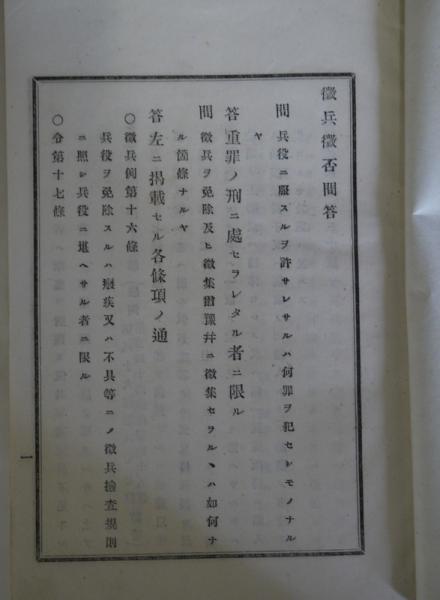 徵兵徵否問答
問 兵役ニ服スルヲ許サレサルハ何罪ヲ犯セシモノナル
ヤ
答 重罪ノ刑ニ處セラレタル者ニ限ル
問 徵兵ヲ免除及ヒ徵集猶豫幷ニ徵集セラルヽハ如何ナ
ル箇條ナルヤ
答 左ニ揭載セル各條項ノ通
〇徵兵例第十六條
兵役ヲ免除スルハ癈疾又ハ不具等ニノ徵兵檢査規則
ニ照シ兵役ニ堪ヘサル者ニ限ル
〇令第十七條
一